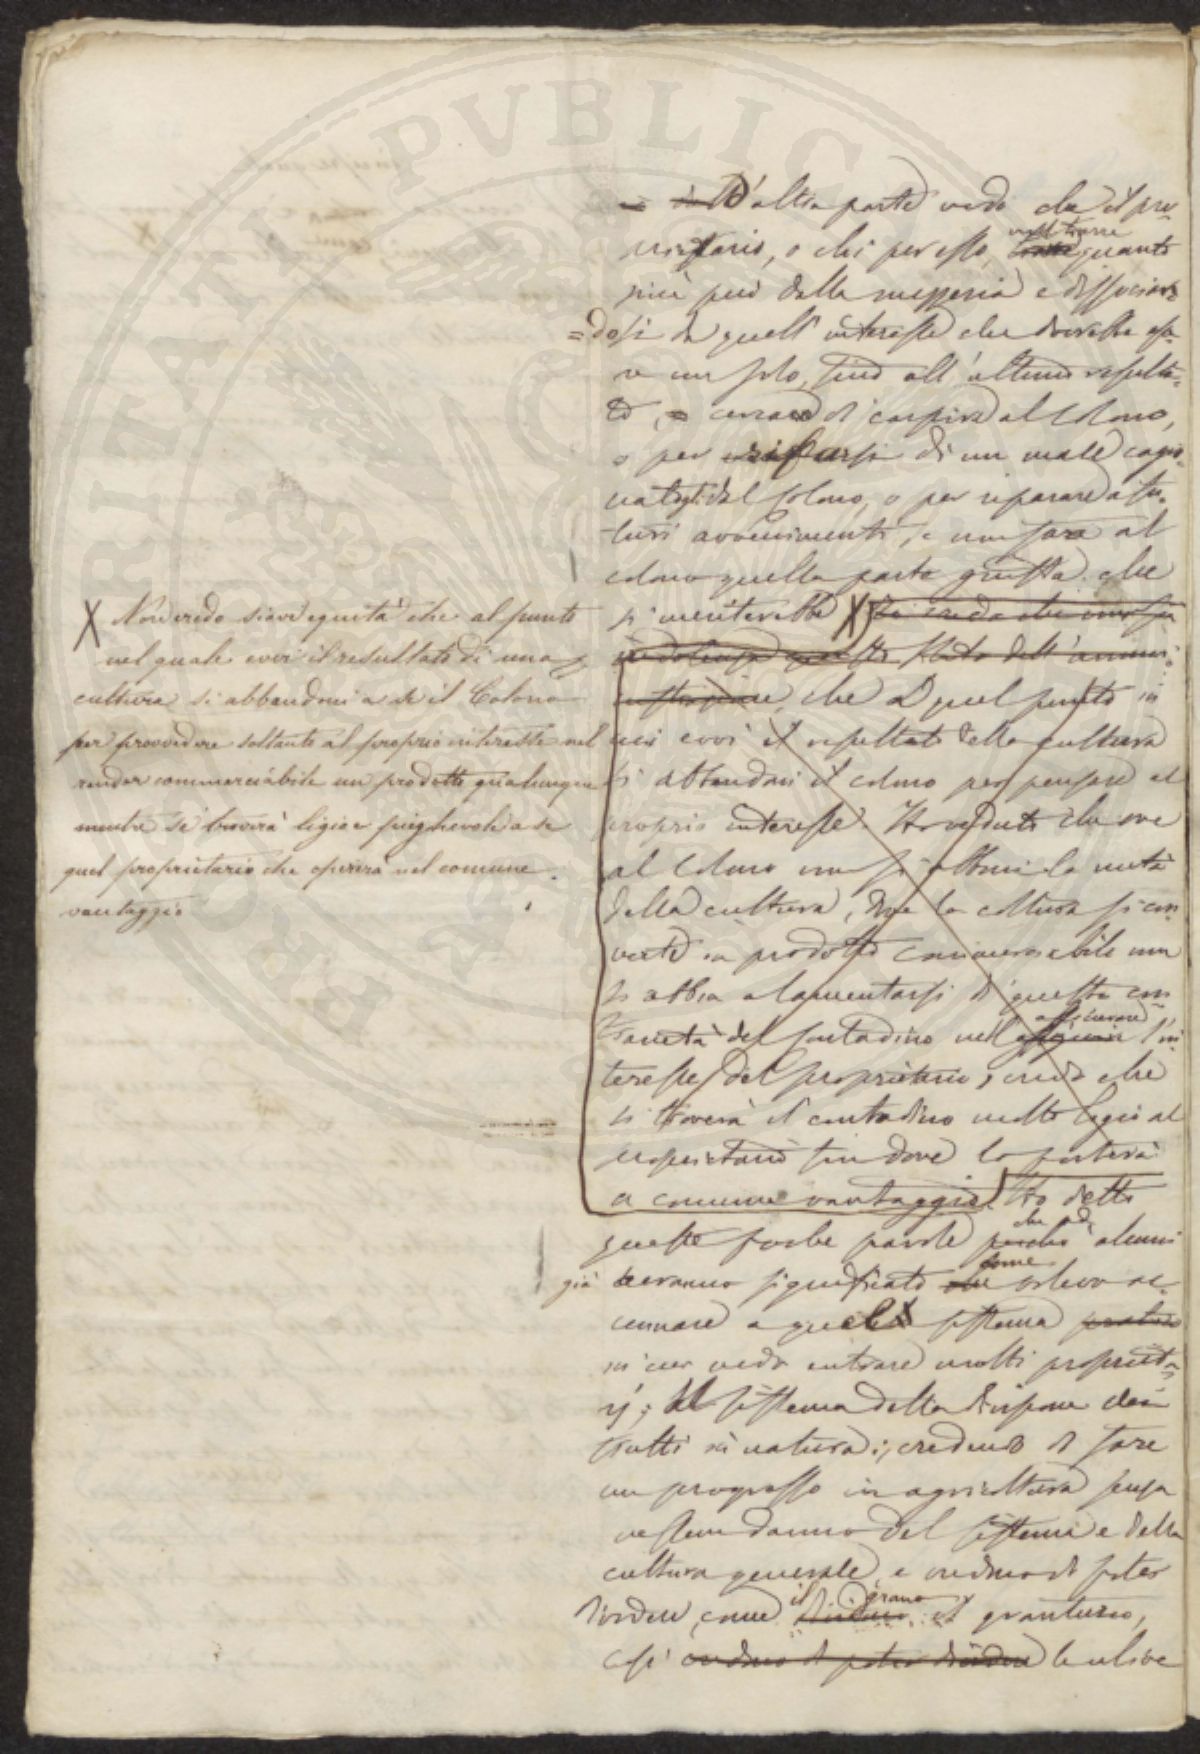 D'altra parte vedo che il pro-
prietario, o chi per esso, vuol trarre quanto
più può dalla mezzeria e dissocian=
=dosi da quell'interesse che dovrebbe esse-
re un solo, sino all'ultimo resulta-
to, cercare di carpire al Colono,
o per rifarsi di un male cagio-
natogli dal Colono, o per riparare a fu-
turi avvenimenti, e non fare al
colono quella parte giusta che
si meriterebbe X Io credo che non sia
questo stato dell'ammini-
strazione, che a quel punto in
cui evvi il resultato della cultura
si abbandoni il colono per pensare al
proprio interesse. Ho veduto che ove
al Colono non si ottiene la metà
della cultura, dove la coltura si con-
verte in prodotto commerciabile non
si abbia a lamentarsi di questa con-
trarietà del contadino nell'assicurare l'in-
teresse del proprietario, credo che
si troverà il contadino molto ligio al
proprietario fin dove lo porterà
a comune vantaggio. Ho detto
queste poche parole perchè che ad alcuni
già avranno significato che come volevo ac-
cennare a quel sistema pratico
in cui vedo entrare molti proprieta-
rj; al sistema della divisione dei
frutti in natura; credendo di fare
un progresso in agricoltura senza
nessun danno del sistema e della
cultura generale, e credono di poter
dividere, come dividono il grano, il granturco,
così credono di poter dividere le ulive
X Non credo siavi equità che al punto
nel quale evvi il resultato di una
cultura si abbandoni a se il Colono
per provvedere soltanto al proprio interesse nel
render commerciabile un prodotto qualunque
mentre si troverà ligio e pieghevole a se
quel proprietario che opererà nel comune
vantaggio
PRIVATI PVBLIC